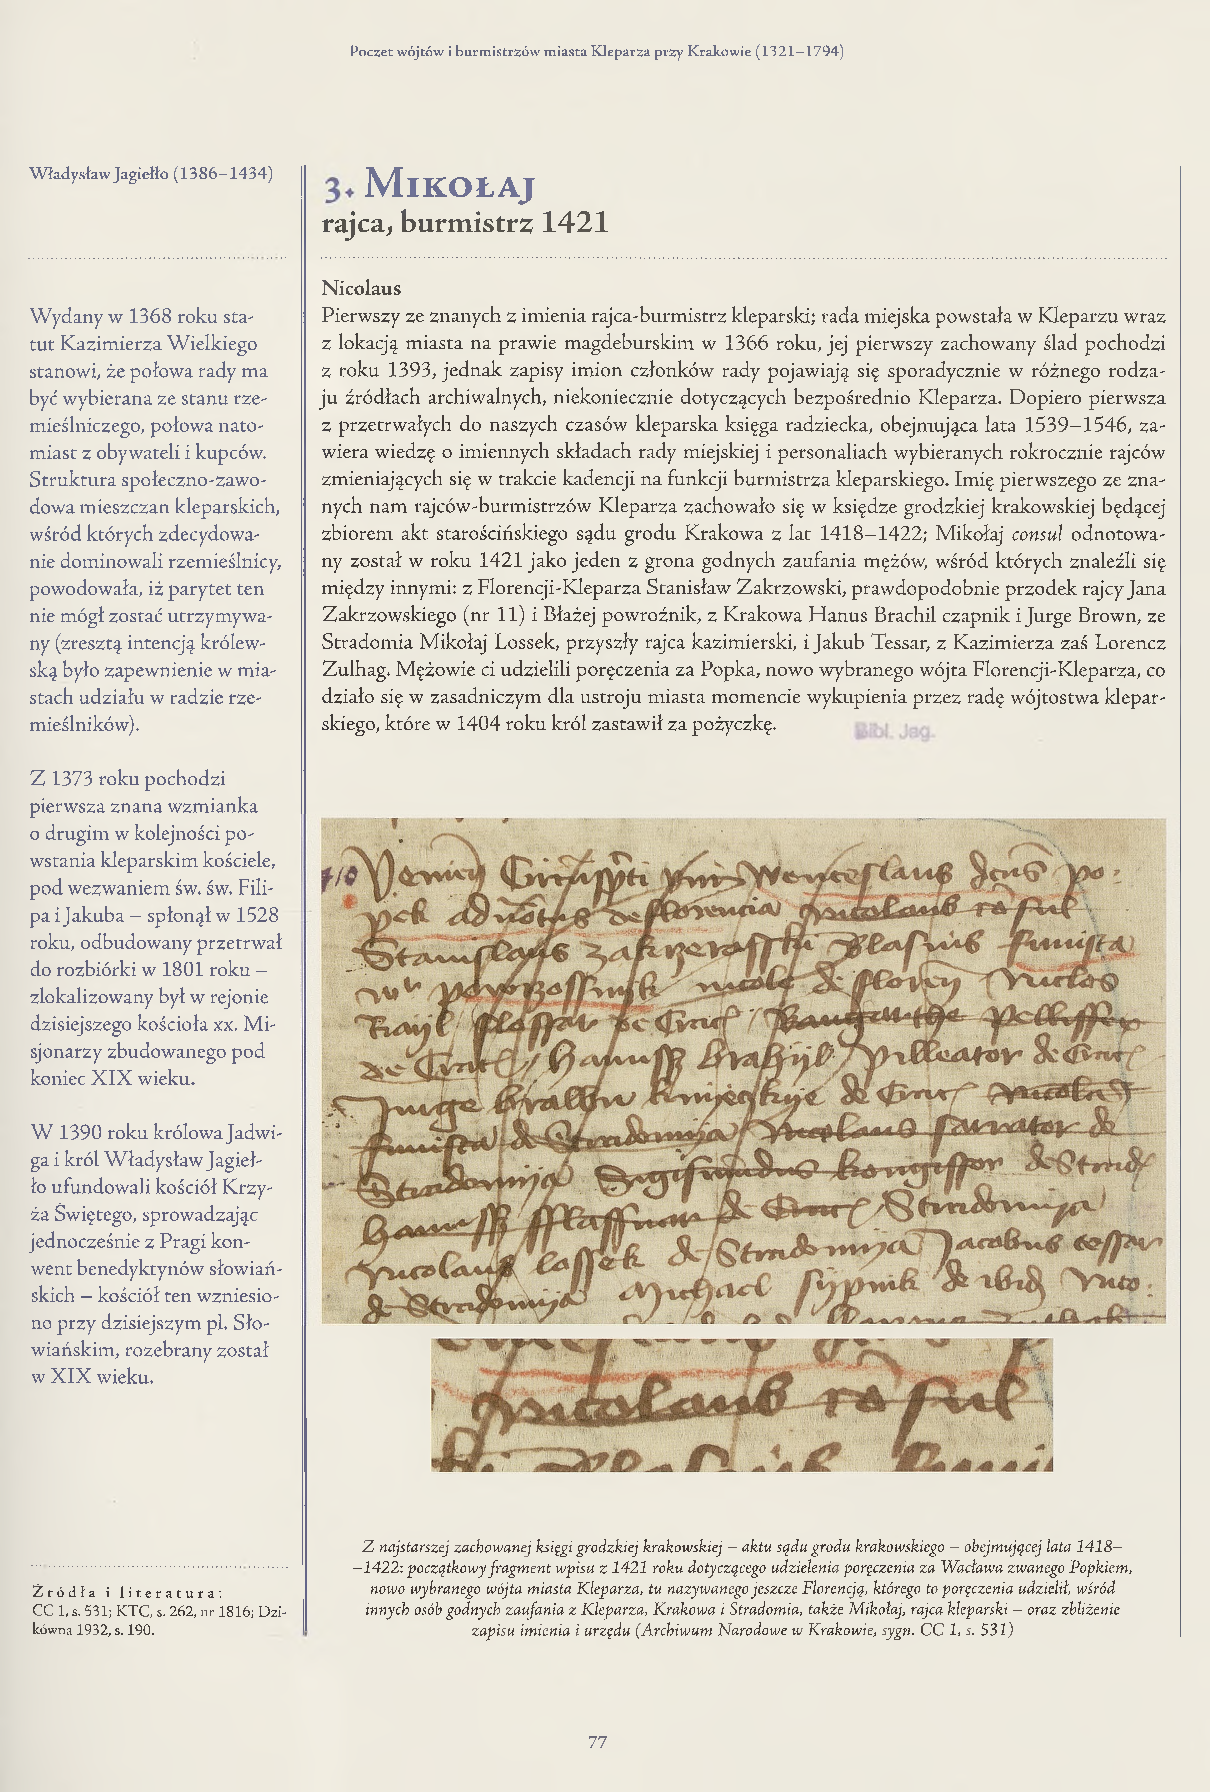 Poczet wójtów i burmistrzów miasta Kleparza przy Krakowie (1321–1794)
Władysław Jagiełło (1386–1434)
Wydany w 1368 roku sta-
tut Kazimierza Wielkiego
stanowi, że połowa rady ma
być wybierana ze stanu rze-
mieślniczego, połowa nato-
miast z obywateli i kupców.
Struktura społeczno-zawo-
dowa mieszczan kleparskich,
wśród których zdecydowa-
nie dominowali rzemieślnicy,
powodowała, iż parytet ten
nie mógł zostać utrzymywa-
ny (zresztą intencją królew-
ską było zapewnienie w mia-
stach udziału w radzie rze-
mieślników).
Z 1373 roku pochodzi
pierwsza znana wzmianka
o drugim w kolejności po-
wstania kleparskim kościele,
pod wezwaniem św. św. Fili-
pa i Jakuba – spłonął w 1528
roku, odbudowany przetrwał
do rozbiórki w 1801 roku –
zlokalizowany był w rejonie
dzisiejszego kościoła xx. Mi-
sjonarzy zbudowanego pod
koniec XIX wieku.
W 1390 roku królowa Jadwi-
ga i król Władysław Jagieł-
ło ufundowali kościół Krzy-
ża Świętego, sprowadzając
jednocześnie z Pragi kon-
went benedyktynów słowiań-
skich – kościół ten wzniesio-
no przy dzisiejszym pl. Sło-
wiańskim, rozebrany został
w XIX wieku.
Źródła i literatura:
CC 1, s. 531; KTC, s. 262, nr 1816; Dzi-
kówna 1932, s. 190.
3. Mikołaj
rajca, burmistrz 1421
Nicolaus
Pierwszy ze znanych z imienia rajca-burmistrz kleparski; rada miejska powstała w Kleparzu wraz
z lokacją miasta na prawie magdeburskim w 1366 roku, jej pierwszy zachowany ślad pochodzi
z roku 1393, jednak zapisy imion członków rady pojawiają się sporadycznie w różnego rodza-
ju źródłach archiwalnych, niekoniecznie dotyczących bezpośrednio Kleparza. Dopiero pierwsza
z przetrwałych do naszych czasów kleparska księga radziecka, obejmująca lata 1539–1546, za-
wiera wiedzę o imiennych składach rady miejskiej i personaliach wybieranych rokrocznie rajców
zmieniających się w trakcie kadencji na funkcji burmistrza kleparskiego. Imię pierwszego ze zna-
nych nam rajców-burmistrzów Kleparza zachowało się w księdze grodzkiej krakowskiej będącej
zbiorem akt starościńskiego sądu grodu Krakowa z lat 1418–1422; Mikołaj consul odnotowa-
ny został w roku 1421 jako jeden z grona godnych zaufania mężów, wśród których znaleźli się
między innymi: z Florencji-Kleparza Stanisław Zakrzowski, prawdopodobnie przodek rajcy Jana
Zakrzowskiego (nr 11) i Błażej powroźnik, z Krakowa Hanus Brachil czapnik i Jurge Brown, ze
Stradomia Mikołaj Lossek, przyszły rajca kazimierski, i Jakub Tessar, z Kazimierza zaś Lorencz
Zulhag. Mężowie ci udzielili poręczenia za Popka, nowo wybranego wójta Florencji-Kleparza, co
działo się w zasadniczym dla ustroju miasta momencie wykupienia przez radę wójtostwa klepar-
skiego, które w 1404 roku król zastawił za pożyczkę.
Bibl. Jag.
Z najstarszej zachowanej księgi grodzkiej krakowskiej – aktu sądu grodu krakowskiego – obejmującej lata 1418–
–1422: początkowy fragment wpisu z 1421 roku dotyczącego udzielenia poręczenia za Wacława zwanego Popkiem,
nowo wybranego wójta miasta Kleparza, tu nazywanego jeszcze Florencją, którego to poręczenia udzielił, wśród
innych osób godnych zaufania z Kleparza, Krakowa i Stradomia, także Mikołaj, rajca kleparski – oraz zbliżenie
zapisu imienia i urzędu (Archiwum Narodowe w Krakowie, sygn. CC 1, s. 531)
77